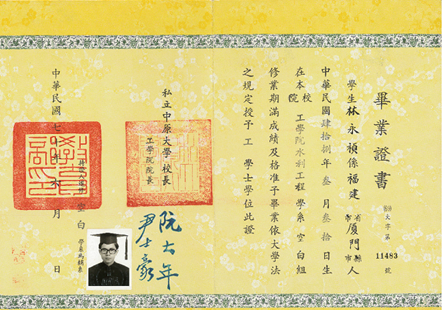 畢業證書
大字第
11483
號
學生林永禎係福建
省
廈門
縣
市
人
中華民國肆拾捌年叁月叁拾日生
在本校
院
工學院水利工程學系空白組
修業期滿成績及格准予畢業依大學法
之規定授予工學士學位此證
私立中原大學校長
工學院院長
阮大年
尹士豪
中華民國七
年
月
日